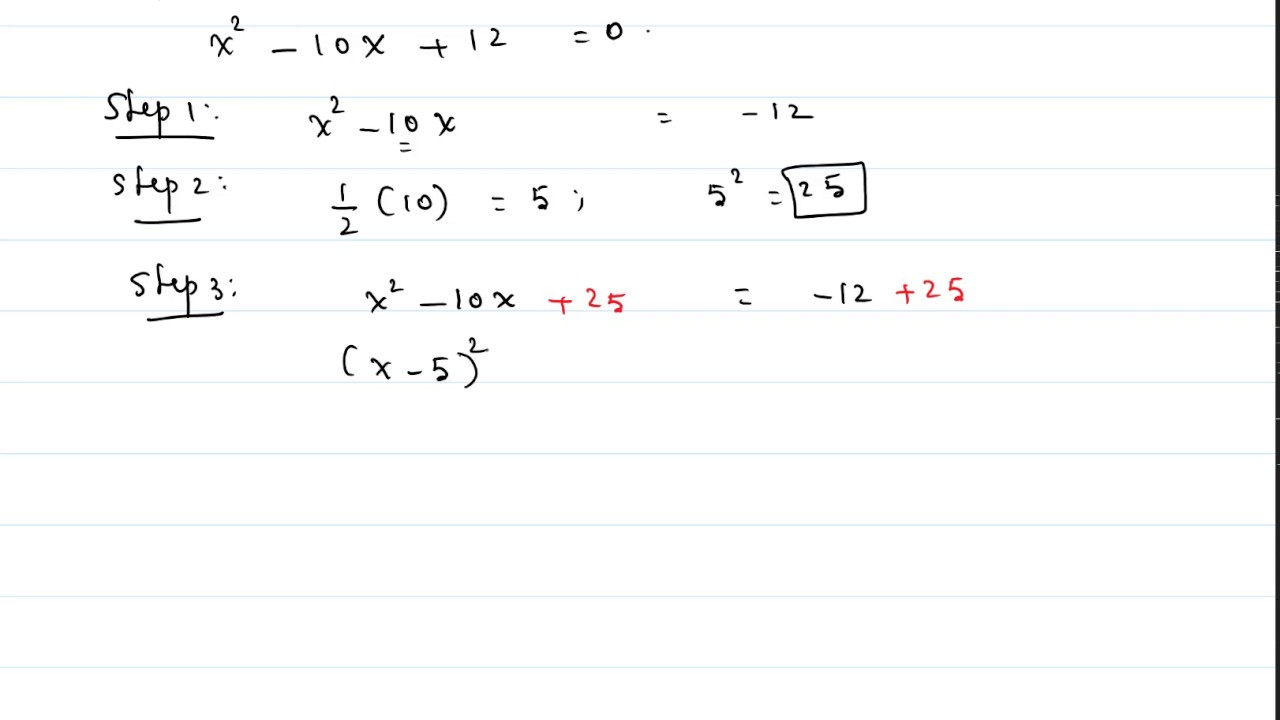 x² - 10x + 12 = 0.
Step 1: x² - 10x = -12
Step 2: 1/2 (10) = 5; 5² = 25
Step 3: x² - 10x + 25 = -12 + 25
(x - 5)²